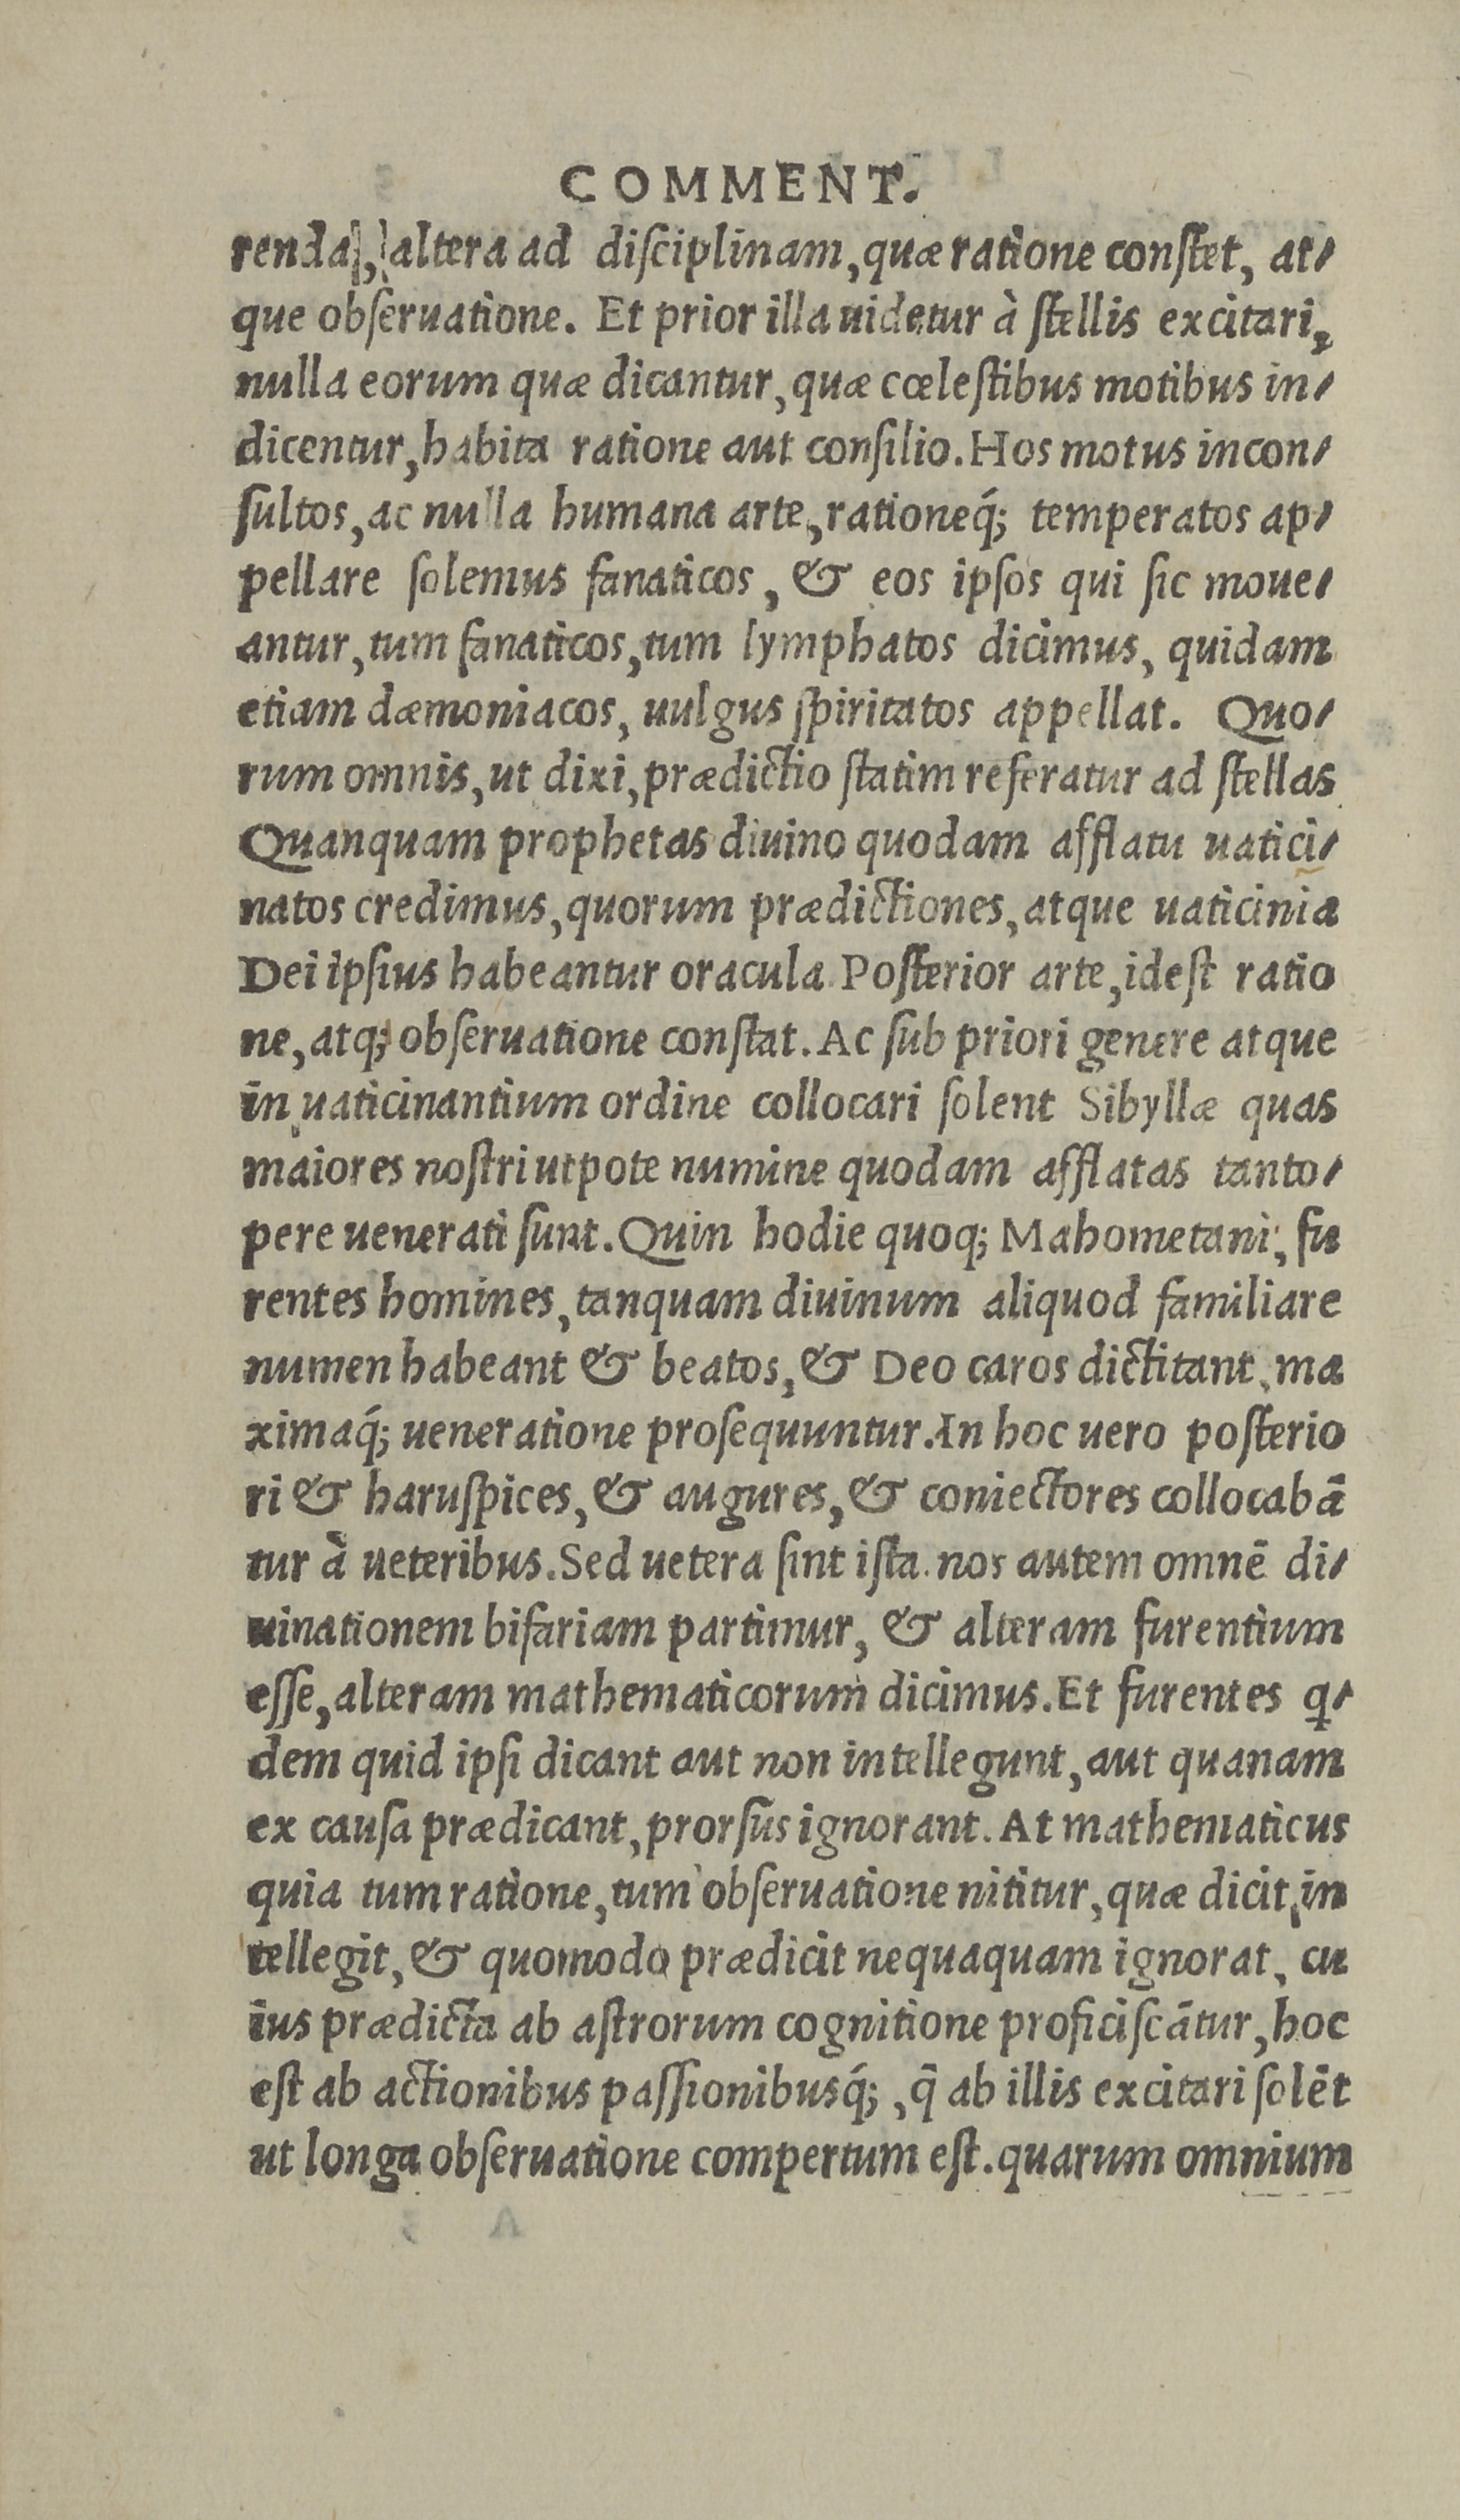 COMMENT.
renda, altera ad diſciplinam, quæ ratione conſtet, at-
que obſeruatione. Et prior illa uidetur à ſtellis excitari,
nulla eorum quæ dicantur, quæ cœleſtibus motibus in-
dicentur, habita ratione aut conſilio. Hos motus incon-
ſultos, ac nulla humana arte, rationeq́; temperatos ap-
pellare ſolemus fanaticos, & eos ipſos qui ſic moue-
antur, tum fanaticos, tum lymphatos dicimus, quidam
etiam dæmoniacos, uulgus ſpiritatos appellat. Quo-
rum omnis, ut dixi, prædictio ſtatim referatur ad ſtellas
Quanquam prophetas diuino quodam afflatu uatici-
natos credimus, quorum prædictiones, atque uaticinia
Dei ipſius habeantur oracula. Poſterior arte, ideſt ratio
ne, atq; obſeruatione conſtat. Ac ſub priori genere atque
in uaticinantium ordine collocari ſolent Sibyllæ quas
maiores noſtri utpote numine quodam afflatas tanto-
pere uenerati ſunt. Quin hodie quoq; Mahometani, fu
rentes homines, tanquam diuinum aliquod familiare
numen habeant & beatos, & Deo caros dictitant, ma
ximaq́; ueneratione proſequuntur. In hoc uero poſterio
ri & haruſpices, & augures, & coniectores collocabā
tur à ueteribus. Sed uetera ſint iſta. nos autem omnē di-
uinationem bifariam partimur, & alteram furentium
eſſe, alteram mathematicorum dicimus. Et furentes ꝗ-
dem quid ipſi dicant aut non intellegunt, aut quanam
ex cauſa prædicant, prorſus ignorant. At mathematicus
quia tum ratione, tum obſeruatione nititur, quæ dicit, in
tellegit, & quomodo prædicit nequaquam ignorat, cu
ius prædicta ab aſtrorum cognitione proficiſcātur, hoc
eſt ab actionibus paſſionibusq́;, q̄ ab illis excitari ſolēt
ut longa obſeruatione compertum eſt. quarum omnium